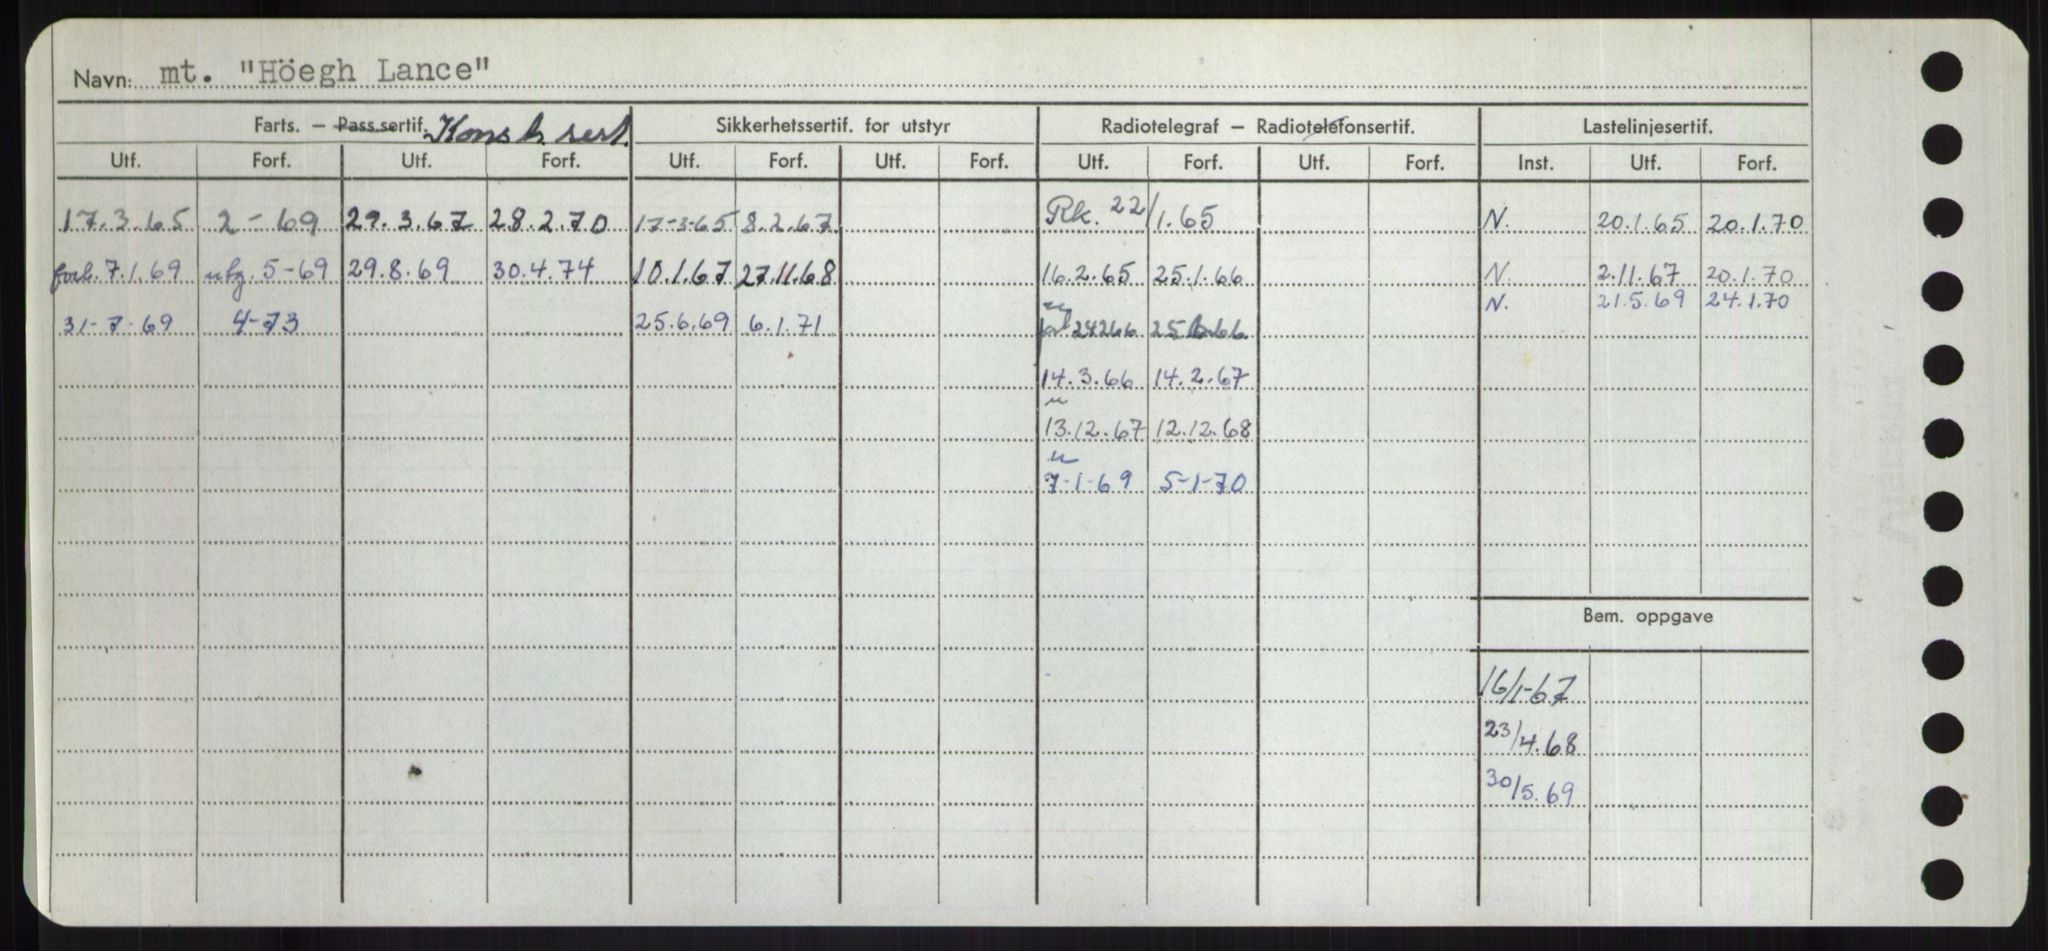 Navn: mt. "Höegh Lance"
Farts. – Pass.sertif. Konstr. sert. Sikkerhetssertif. for utstyr Radiotelegraf – Radiotelefonsertif. Lastelinjesertif.
Utf. Forf. Utf. Forf. Utf. Forf. Utf. Forf. Utf. Forf. Utf. Forf. Inst. Utf. Forf.
17.3.65 2-69 29.3.67 28.2.70 17-3-65 8.2.67 Rk. 22/1.65 N. 20.1.65 20.1.70
forl. 7.1.69 5-69 29.8.69 30.4.74 10.1.67 27.11.68 16.2.65 25.1.66 N. 2.11.67 20.1.70
N. 21.5.69 24.1.70
31-7-69 4-73 25.6.69 6.1.71
14.3.66 14.2.67
13.12.67 12.12.68
7-1-69 5-1-70
Bem. oppgave
16/1-67
23/4.68
30/5.69